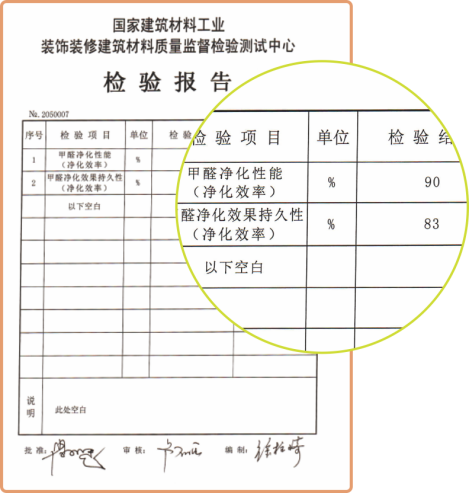 国家建筑材料工业
装饰装修建筑材料质量监督检验测试中心
检验报告
№. 2050007
序号 检验项目 单位 检验
1 甲醛净化性能
（净化效率） %
2 甲醛净化效果持久性
（净化效率） %
以下空白
检验项目 单位 检验结
甲醛净化性能
（净化效率） % 90
醛净化效果持久性
（净化效率） % 83
以下空白
说明 此处空白
批准： 审核： 编制：